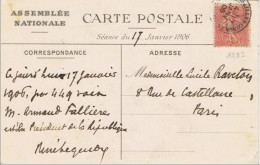 ASSEMBLÉE
NATIONALE
CARTE POSTALE
Séance du 17 Janvier 1906
CORRESPONDANCE
ADRESSE
Ce jourd'hui 17 Janvier
1906, par 449 voix
M. Armand Fallières
Président de la République
Mademoiselle Lucile
8 Rue de Castellane
Paris